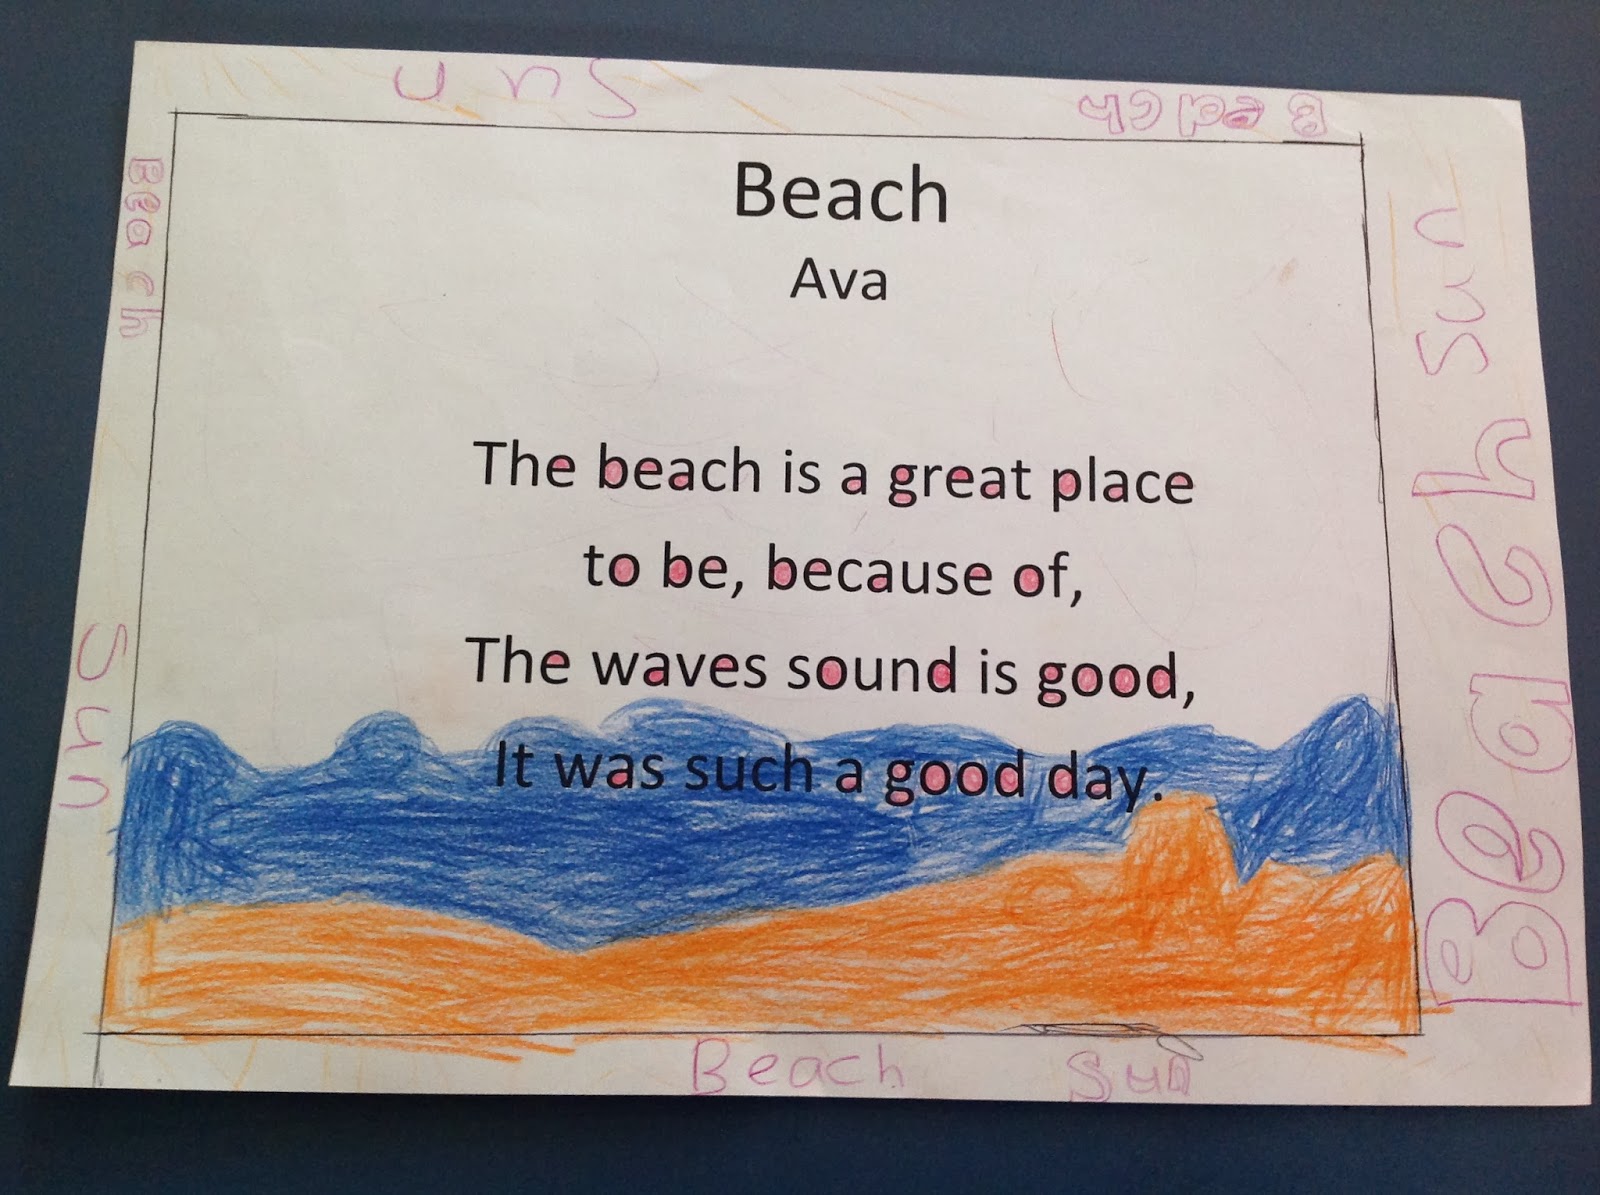 Sun
Beach
Beach
Ava
The beach is a great place
to be, because of,
The waves sound is good,
It was such a good day.
Beach
Sun
Beach
Sun
Beach Sun